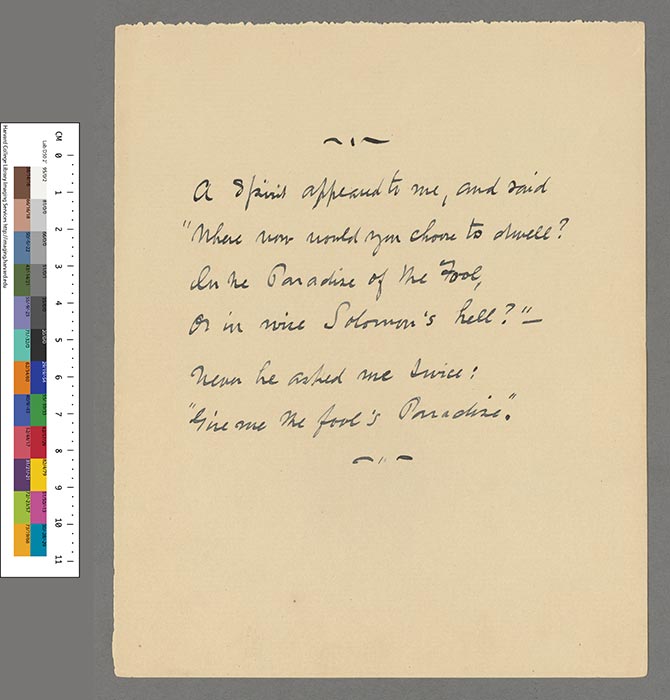 A Spirit appeared to me, and said
"Where now would you choose to dwell?
In the Paradise of the Fool,
Or in wise Solomon's hell?"—
Never he asked me twice:
"Give me the fool's Paradise."
CM 0 1 2 3 4 5 6 7 8 9 10 11
Harvard College Library Imaging Services http://imaging.harvard.edu